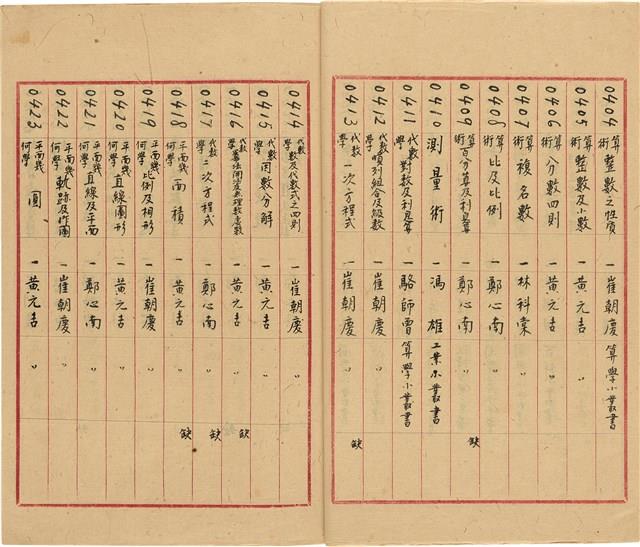 0404 算術 整數之性質 一 崔朝慶 算學小叢書
0405 算術 整數及小數 一 黃元吉 〃
0406 算術 分數四則 一 黃元吉 〃
0407 算術 複名數 一 林科棠 〃
0408 算術 比及比例 一 鄭心南 〃
0409 算術 百分算及利息算 一 鄭心南 〃 缺
0410 測量術 一 馮雄 工業小叢書
0411 代數學 對數及利息算 一 駱師曾 算學小叢書
0412 代數學 順列組合及級數 一 崔朝慶 〃
0413 代數學 一次方程式 一 崔朝慶 〃 缺
0414 代數學 數及代數式之四則 一 崔朝慶 〃
0415 代數學 因數分解 一 黃元吉 〃
0416 代數學 開法無理數虛數 一 黃元吉 〃 缺
0417 代數學 二次方程式 一 鄭心南 〃 缺
0418 平面幾何學 面積 一 黃元吉 〃 缺
0419 平面幾何學 比例及相形 一 崔朝慶 〃
0420 平面幾何學 直線圖形 一 黃元吉 〃
0421 平面幾何學 直線及平面 一 鄭心南 〃
0422 平面幾何學 軌跡及作圖 一 崔朝慶 〃
0423 平面幾何學 圓 一 黃元吉 〃